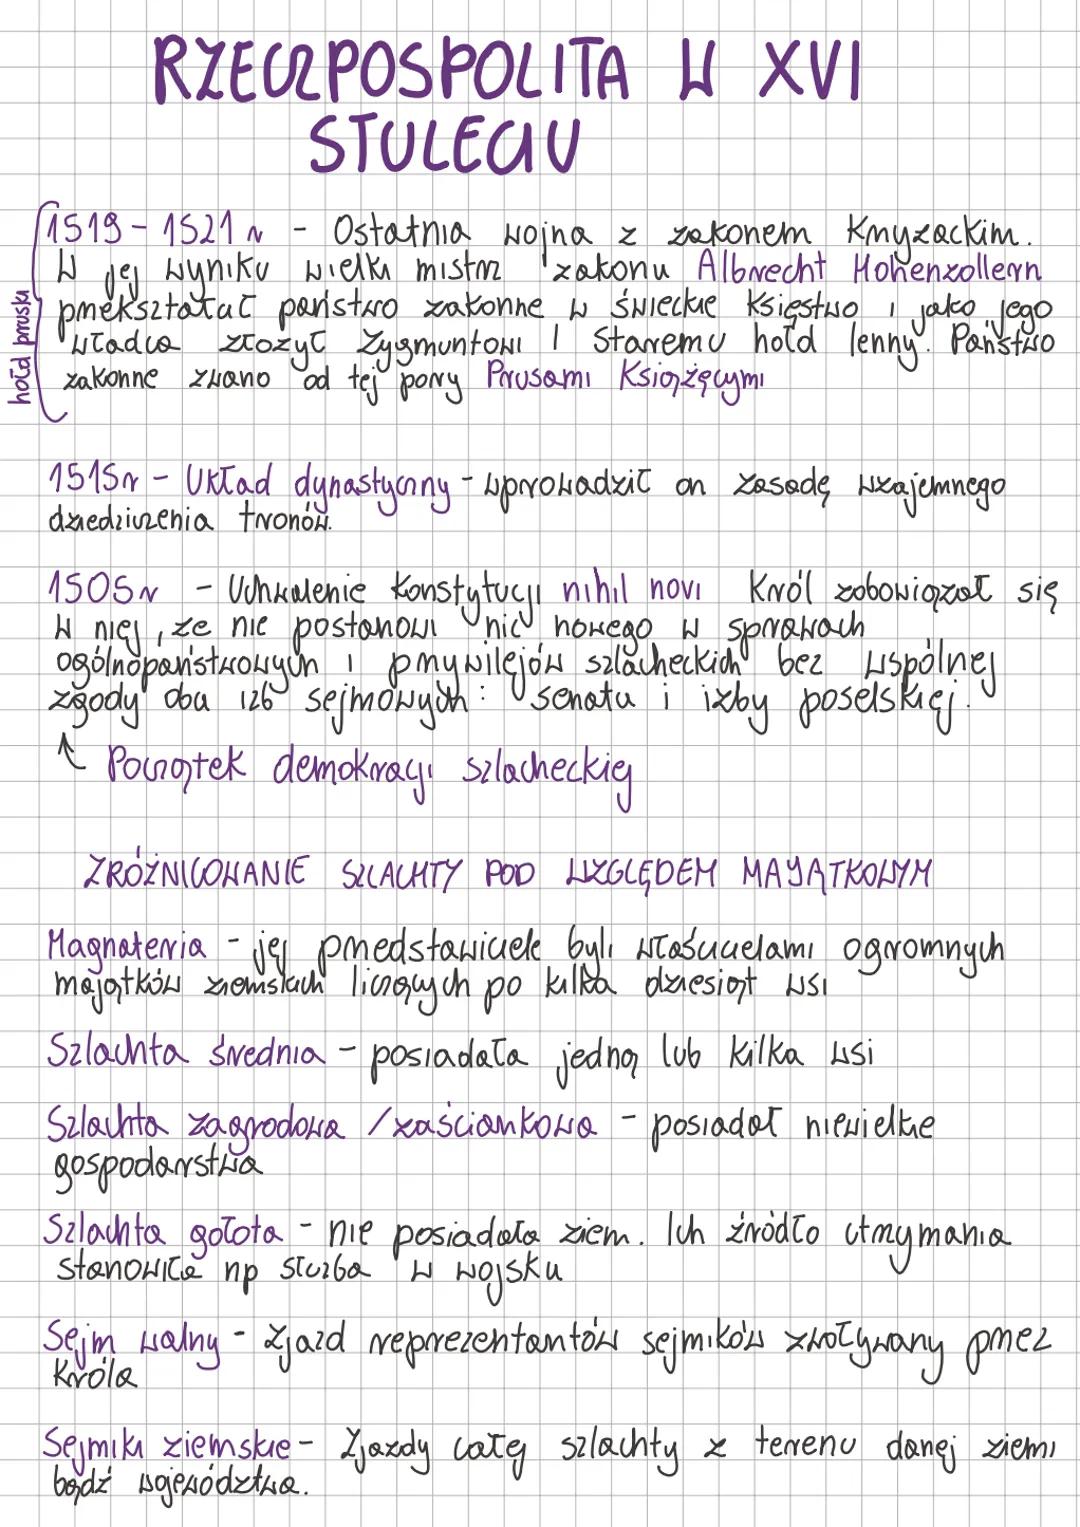 RZECZPOSPOLITA W XVI
STULECIU
hołd pruski
1519 - 1521 r - Ostatnia wojna z zakonem Krzyżackim.
W jej wyniku wielki mistrz zakonu Albrecht Hohenzollern
przekształcał państwo zakonne w świeckie Księstwo i jako jego
władca złożył Zygmuntowi I Staremu hołd lenny. Państwo
zakonne zwano od tej pory Prusami Książęcymi
1515r - Układ dynastyczny - wprowadził on zasadę wzajemnego
dziedziczenia tronów.
1505r - Uchwalenie Konstytucji nihil novi Król zobowiązał się
w niej, że nie postanowi nic nowego w sprawach
ogólnopaństwowych i przywilejów szlacheckich bez wspólnej
zgody oba izb sejmowych: senatu i izby poselskiej.
↑ Początek demokracji szlacheckiej
ZRÓŻNICOWANIE SZLACHTY POD WZGLĘDEM MAJĄTKOWYM
Magnateria - jej przedstawiciele byli właścicielami ogromnych
majątków ziemskich liczących po kilka dziesiąt wsi
Szlachta średnia - posiadała jedną lub kilka wsi
Szlachta zagrodowa / zaściankowa - posiadał niewielkie
gospodarstwa
Szlachta gołota - nie posiadała ziem. Ich źródło utrzymania
stanowiła np służba w wojsku
Sejm walny - Zjazd reprezentantów sejmików zwoływany przez
króla
Sejmiki ziemskie - Zjazdy całej szlachty z terenu danej ziemi
bądź województwa.